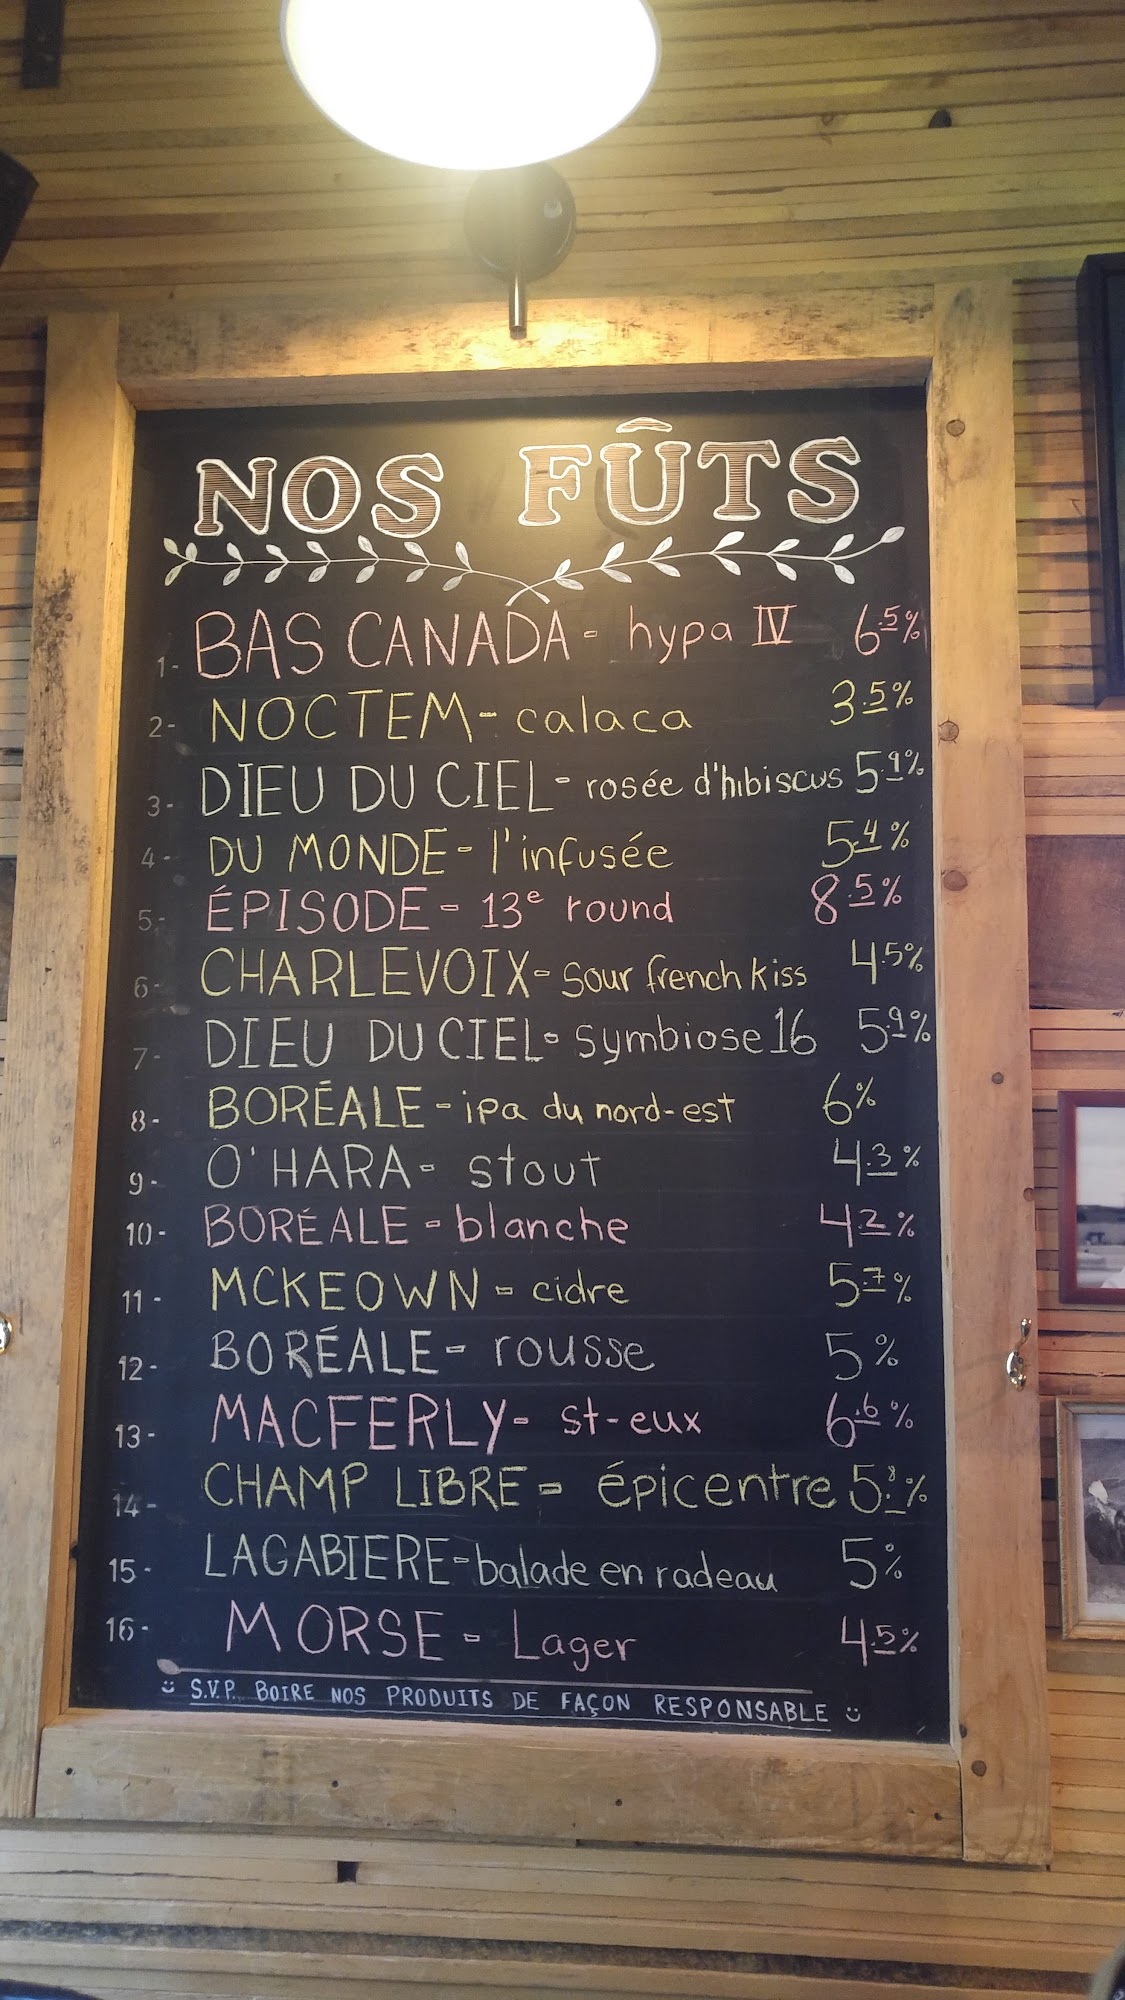 NOS FÛTS
1- BAS CANADA - hypa IV 6.5%
2- NOCTEM - calaca 3.5%
3- DIEU DU CIEL - rosée d'hibiscus 5.9%
4- DU MONDE - l'infusée 5.4%
5- ÉPISODE - 13e round 8.5%
6- CHARLEVOIX - Sour french kiss 4.5%
7- DIEU DU CIEL - symbiose 16 5.9%
8- BORÉALE - ipa du nord-est 6%
9- O'HARA - stout 4.3%
10- BORÉALE - blanche 4.2%
11- MCKEOWN - cidre 5.7%
12- BORÉALE - rousse 5%
13- MACFERLY - st-eux 6.6%
14- CHAMP LIBRE - épicentre 5.8%
15- LAGABIERE - balade en radeau 5%
16- MORSE - Lager 4.5%
S.V.P. BOIRE NOS PRODUITS DE FAÇON RESPONSABLE